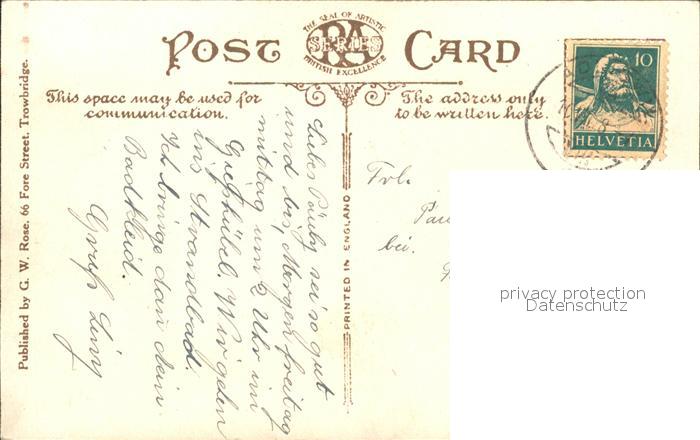 Published by G. W. Rose. 66 Fore Street, Trowbridge.
POST CARD
THE SEAL OF ARTISTIC
RA
SERIES
BRITISH EXCELLENCE
This space may be used for
communication.
The address only
to be written here.
Liebes Pauly sei so gut
und bei, Morgen freitag
mittag um 2 Uhr im
Gießhübel. Wir gehen
ins Strandbad.
Ich bringe dan dein
Badkleid.
Gruß Liny
PRINTED IN ENGLAND
Frl.
Pau
bei.
10
HELVETIA
privacy protection
Datenschutz